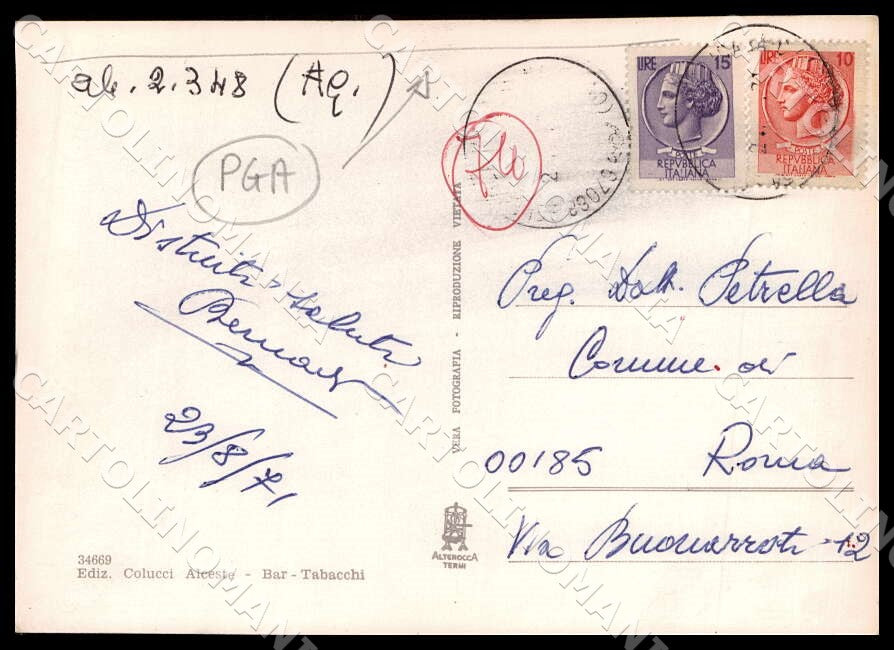 ab. 2.348 (Aq.)
PGA
LIRE 15
POSTE
REPVBBLICA
ITALIANA
LIRE 10
POSTE
REPVBBLICA
ITALIANA
67032
Distinti saluti
23/8/71
VERA FOTOGRAFIA - RIPRODUZIONE VIETATA
Preg. Dott. Petrella
Comune di
00185 Roma
Via Buonarroti 12
34669
Ediz. Colucci Alceste - Bar - Tabacchi
ALTEROCCA
TERNI
CARTOLINOMANIA